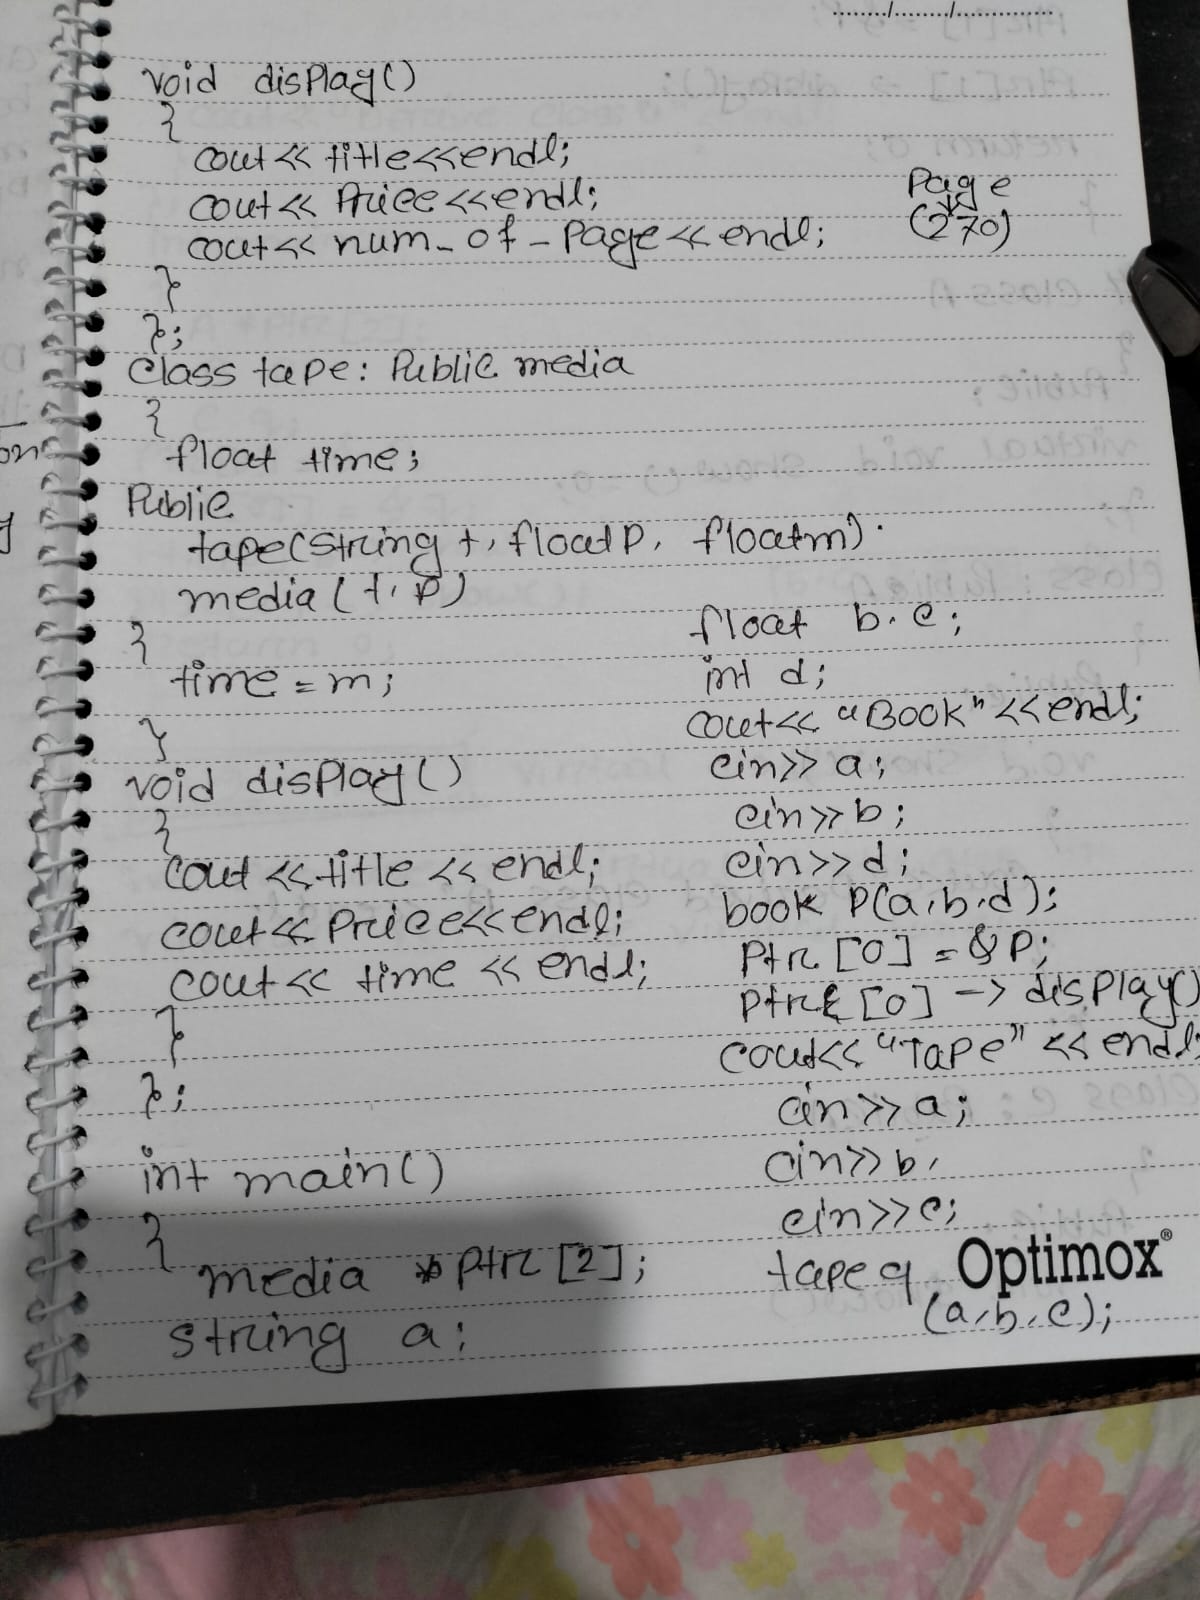 ......../......../...............
void display()
{
cout<< title<<endl;
cout<< Price<<endl;
cout<< num_of_Page<<endl;
Page
(270)
}
};
Class tape: Public media
{
float time;
Public
tape(string t, float P, float m).
media(t, P)
{
time = m;
}
void display()
{
cout <<title << endl;
cout<< Price<<endl;
cout<< time << endl;
}
};
int main()
{
media * Ptr [2];
string a;
float b, c;
int d;
cout<< "Book" <<endl;
cin>> a;
cin>> b;
cin>>d;
book P(a,b,d);
Ptr [0] = &P;
Ptr [0] -> display()
cout<< "Tape" << endl;
cin>>a;
cin>>b,
cin>>c;
tape q
(a,b,c);
Optimox®
on
y